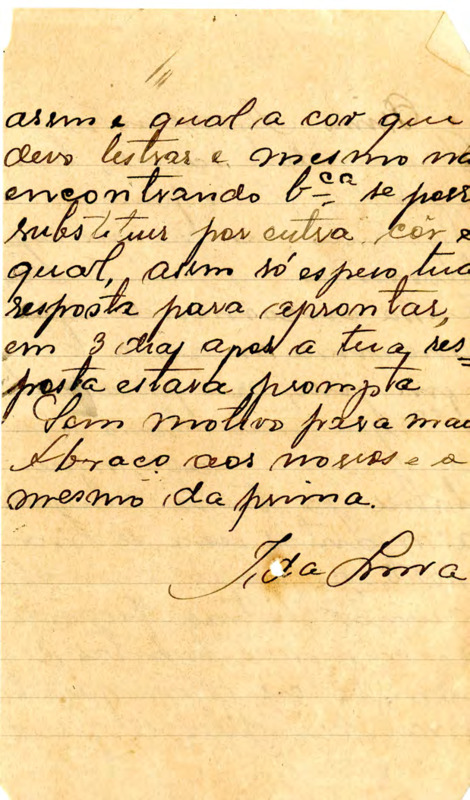 assim e qual a cor que
devo lestrar e mesmo nã
encontrando b.ca se poss
substituir por outra côr e
qual, assim só espero tua
resposta para aprontar,
em 3 dias apos a tua res=
posta estara prompta
Sem motivo para mai
Abraço aos nossos e o
mesmo da prima.
Ida